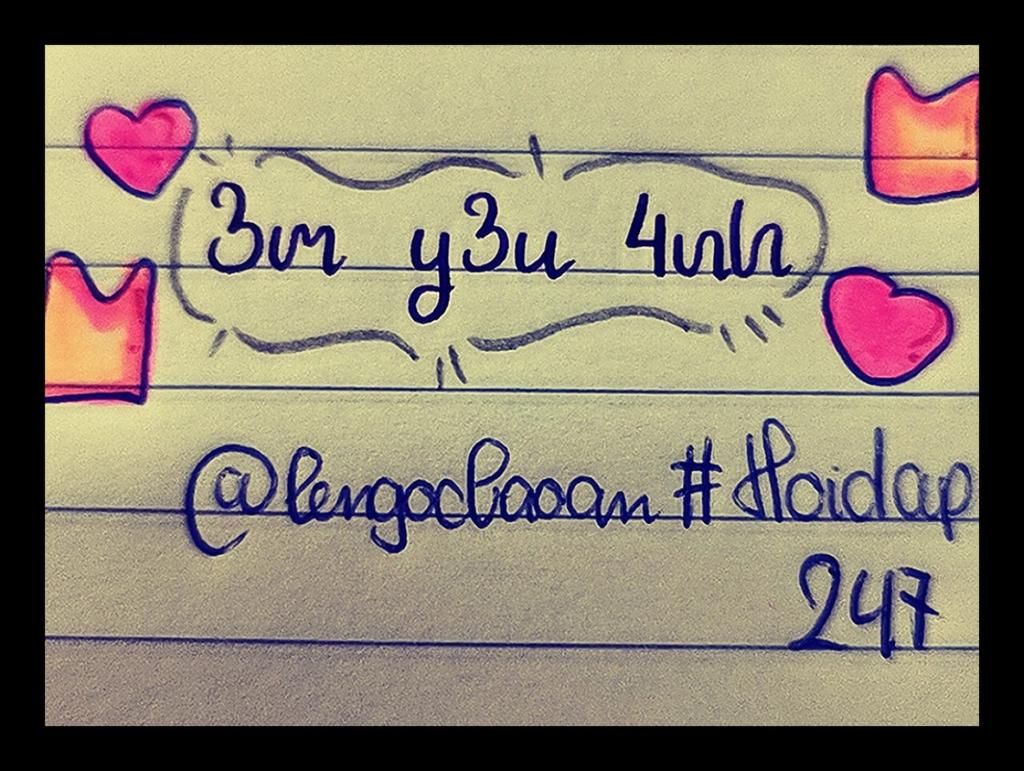 3m y3u 4nh
@lengocbaoan #Hoidap
247